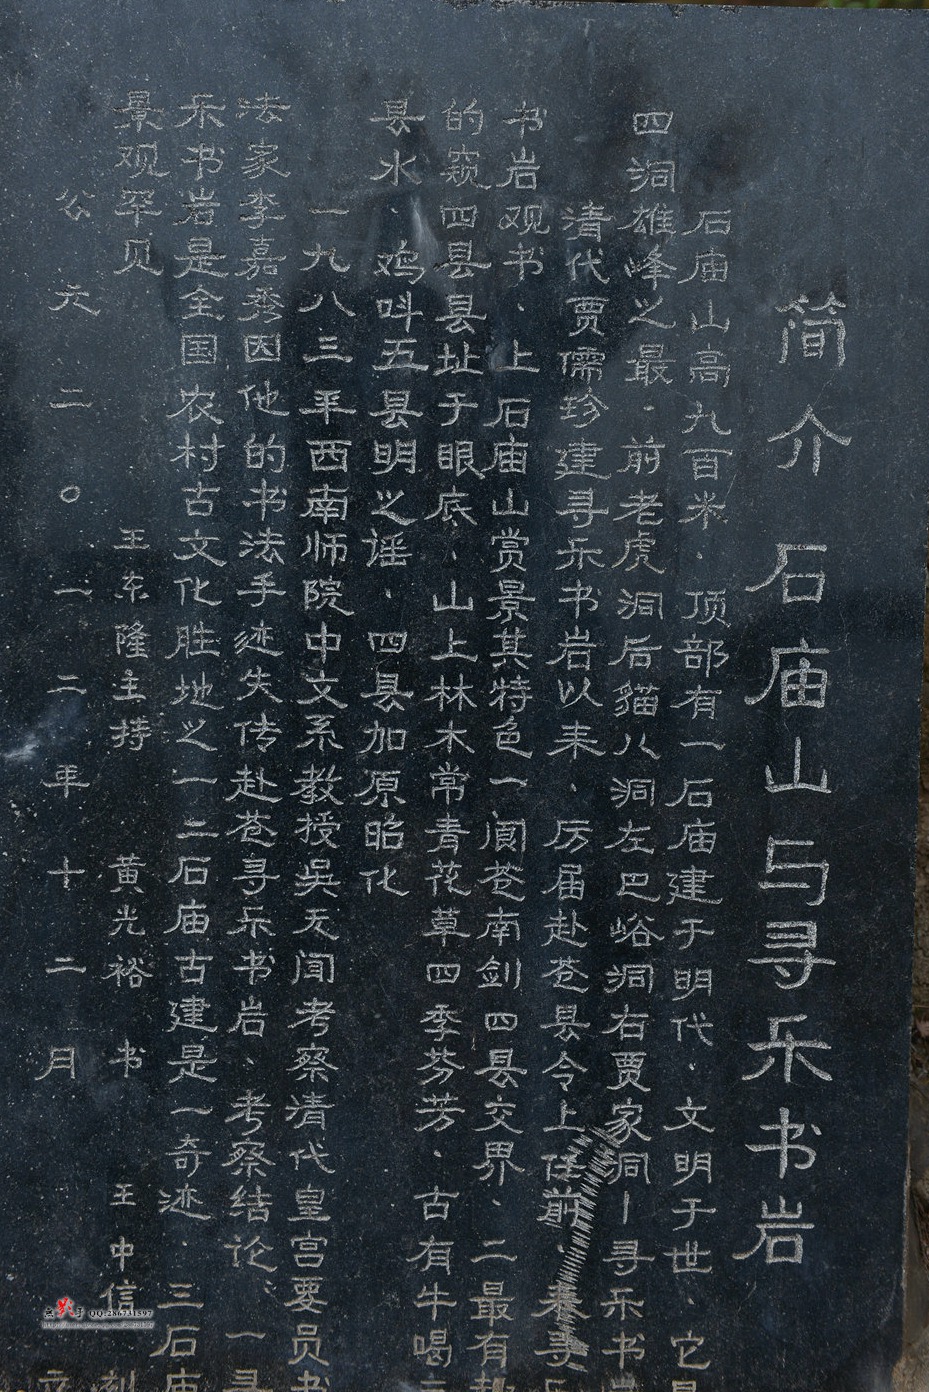 简介石庙山与寻乐书岩
石庙山高九百米．顶部有一石庙建于明代．文明于世．它
四洞雄峰之最．前老虎洞后猫儿洞左巴峪洞右贾家洞—寻乐书
清代贾儒珍建寻乐书岩以来．厉届赴苍县令上任前．
书岩观书．上石庙山赏景其特色一阆苍南剑四县交界．二最有
的窥四县县址于眼底．山上林木常青花草四季芬芳．古有牛喝
县水．鸡叫五县明之谣．四县加原昭化
一九八三年西南师院中文系教授吴天闻考察清代皇宫要员书
法家李嘉秀因他的书法手迹失传赴苍寻乐书岩．考察结论．一寻
乐书岩是全国农村古文化胜地之一二石庙古建是一奇迹．三石庙
景观罕见
王东隆主持 黄光裕 书 王中信刻
公元二〇一二年十二月 立
QQ:286731597